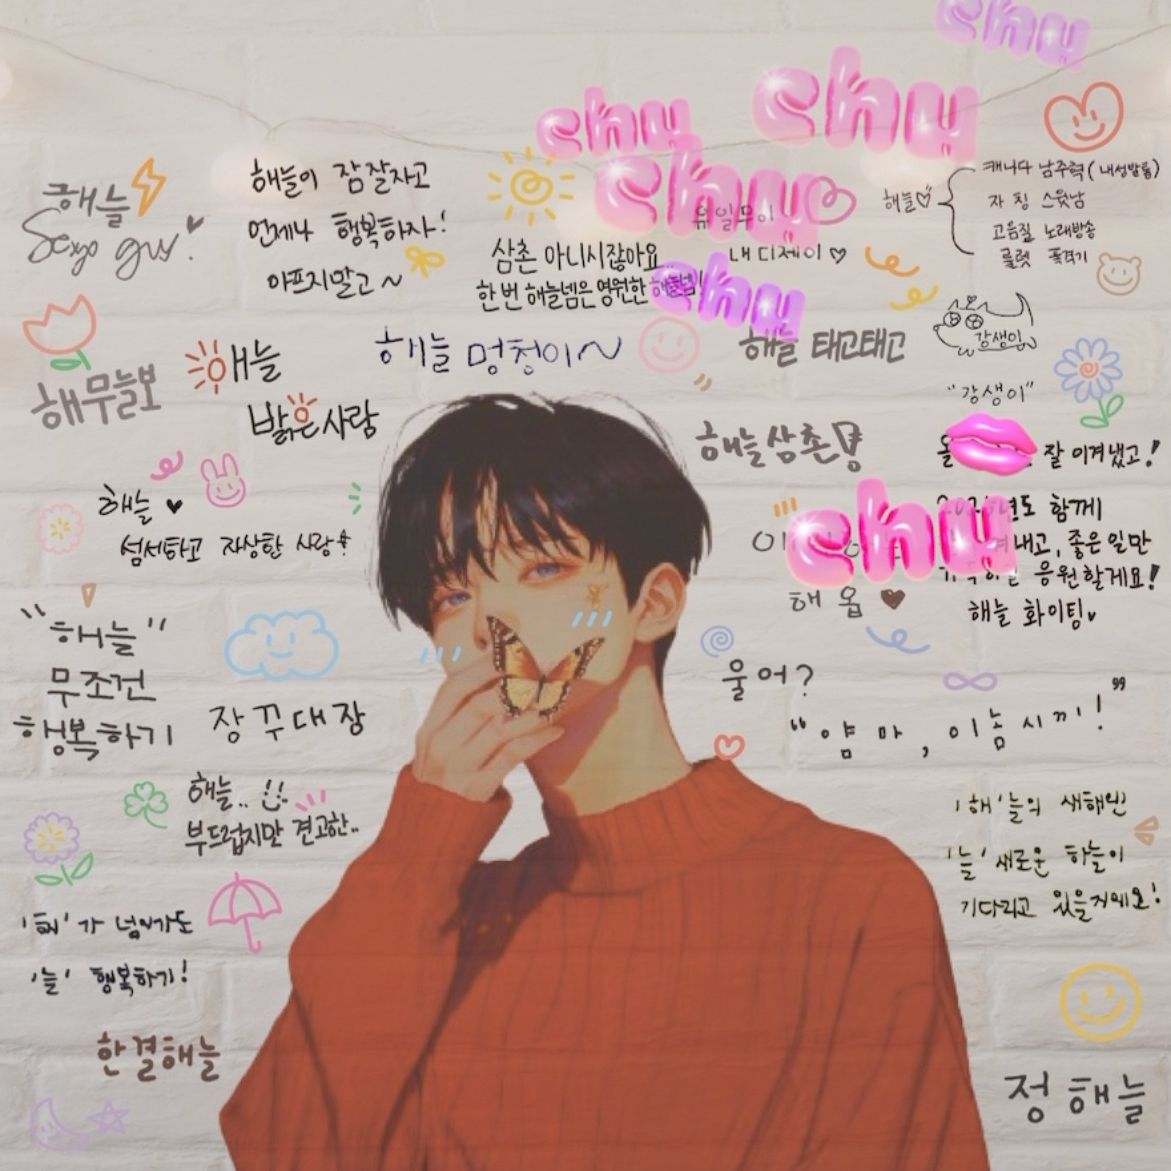 chu
chu
chu
chu
해늘
Sexy guy!
해늘이 잠 잘자고
언제나 행복하자!
아프지말고~
유일무이
내 디제이♡
삼촌 아니시잖아요
한 번 해늘넴은 영원한 해늘넴!
chu
해늘♡
캐나다 남주혁(내성발톰)
자칭 스윗남
고음질 노래방송
룰렛 폭격기
해무늘보
해늘
밝은사람
해늘 멍청이~
해늘 태고태고
강생이
"강생이"
해늘삼촌
잘 이겨냈고!
년도 함께
chu
내고, 좋은일만
응원할게요!
해늘 화이팅
해늘♥
섬세하고 자상한 사랑
해옵♥
"해늘"
무조건
행복하기
장꾸대장
울어?
"얌마, 이놈시끼!"
해늘..
부드럽지만 견고한..
'해'늘의 새해엔
'늘'새로운 하늘이
기다리고 있을거예요!
'해'가 넘어가도
'늘' 행복하기!
한결해늘
정해늘